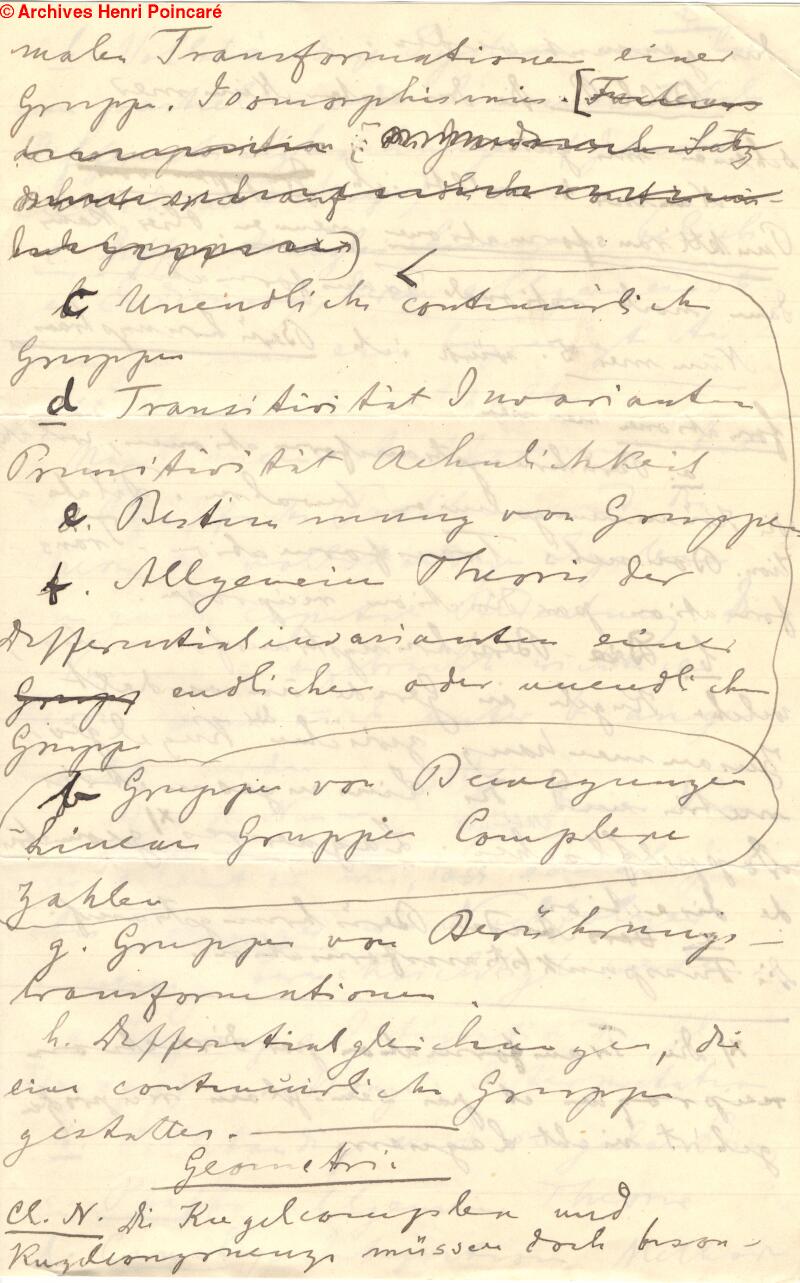 © Archives Henri Poincaré
malen Transformationen einer
Gruppe. Isomorphismus. [Factoren
decomposition
lichen Gruppen aus)
c Unendliche continuirliche
Gruppen
d Transitivität Invarianten
Primitivität Aehnlichkeit
e. Bestimmung von Gruppen
f. Allgemeine Theorie der
Differentialinvarianten einer
Gruppe endlichen oder unendlichen
Gruppe
b Gruppen von Bewegungen
Lineare Gruppen Complexe
Zahlen
g. Gruppen von Berührungs-
transformationen.
h. Differentialgleichungen, die
eine continuirliche Gruppe
gestatten.
Geometrie
Cl. N. Die Kugelcomplexe und
Kugelcongruenzen müssen doch beson-